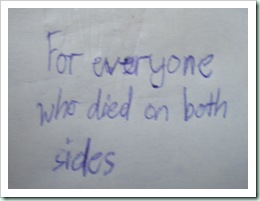 For everyone
who died on both
sides